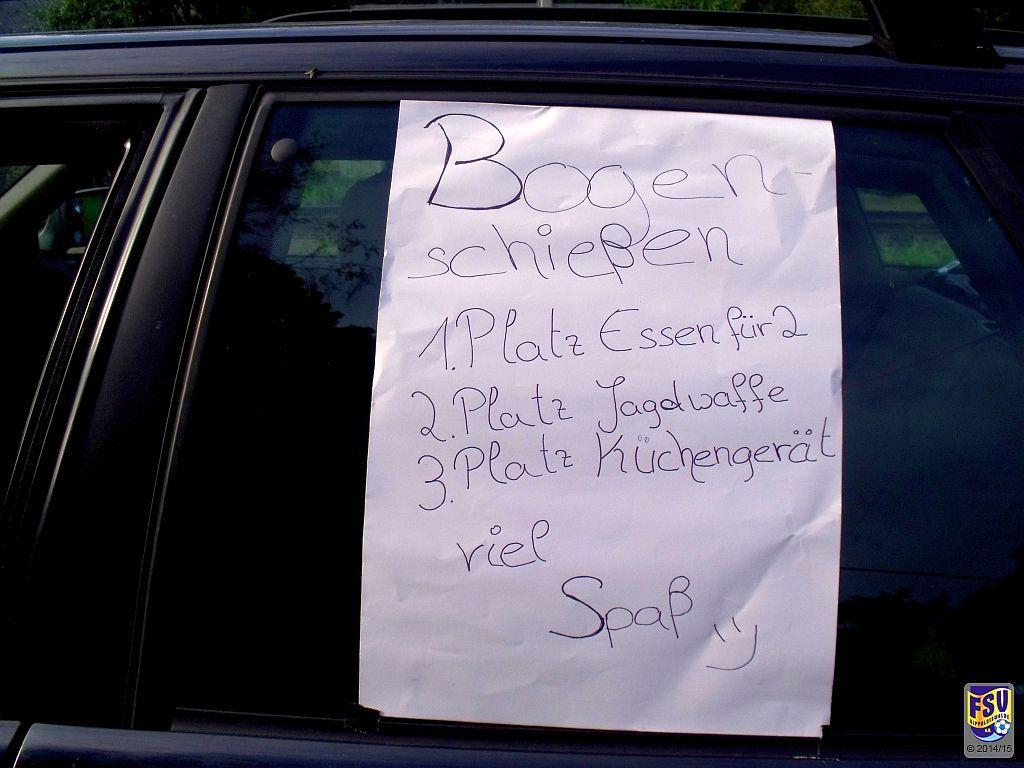 Bogen-
schießen
1. Platz Essen für 2
2. Platz Jagdwaffe
3. Platz Küchengerät
viel
Spaß :)
FSV
DIPPOLDISWALDE
e.V.
© 2014/15